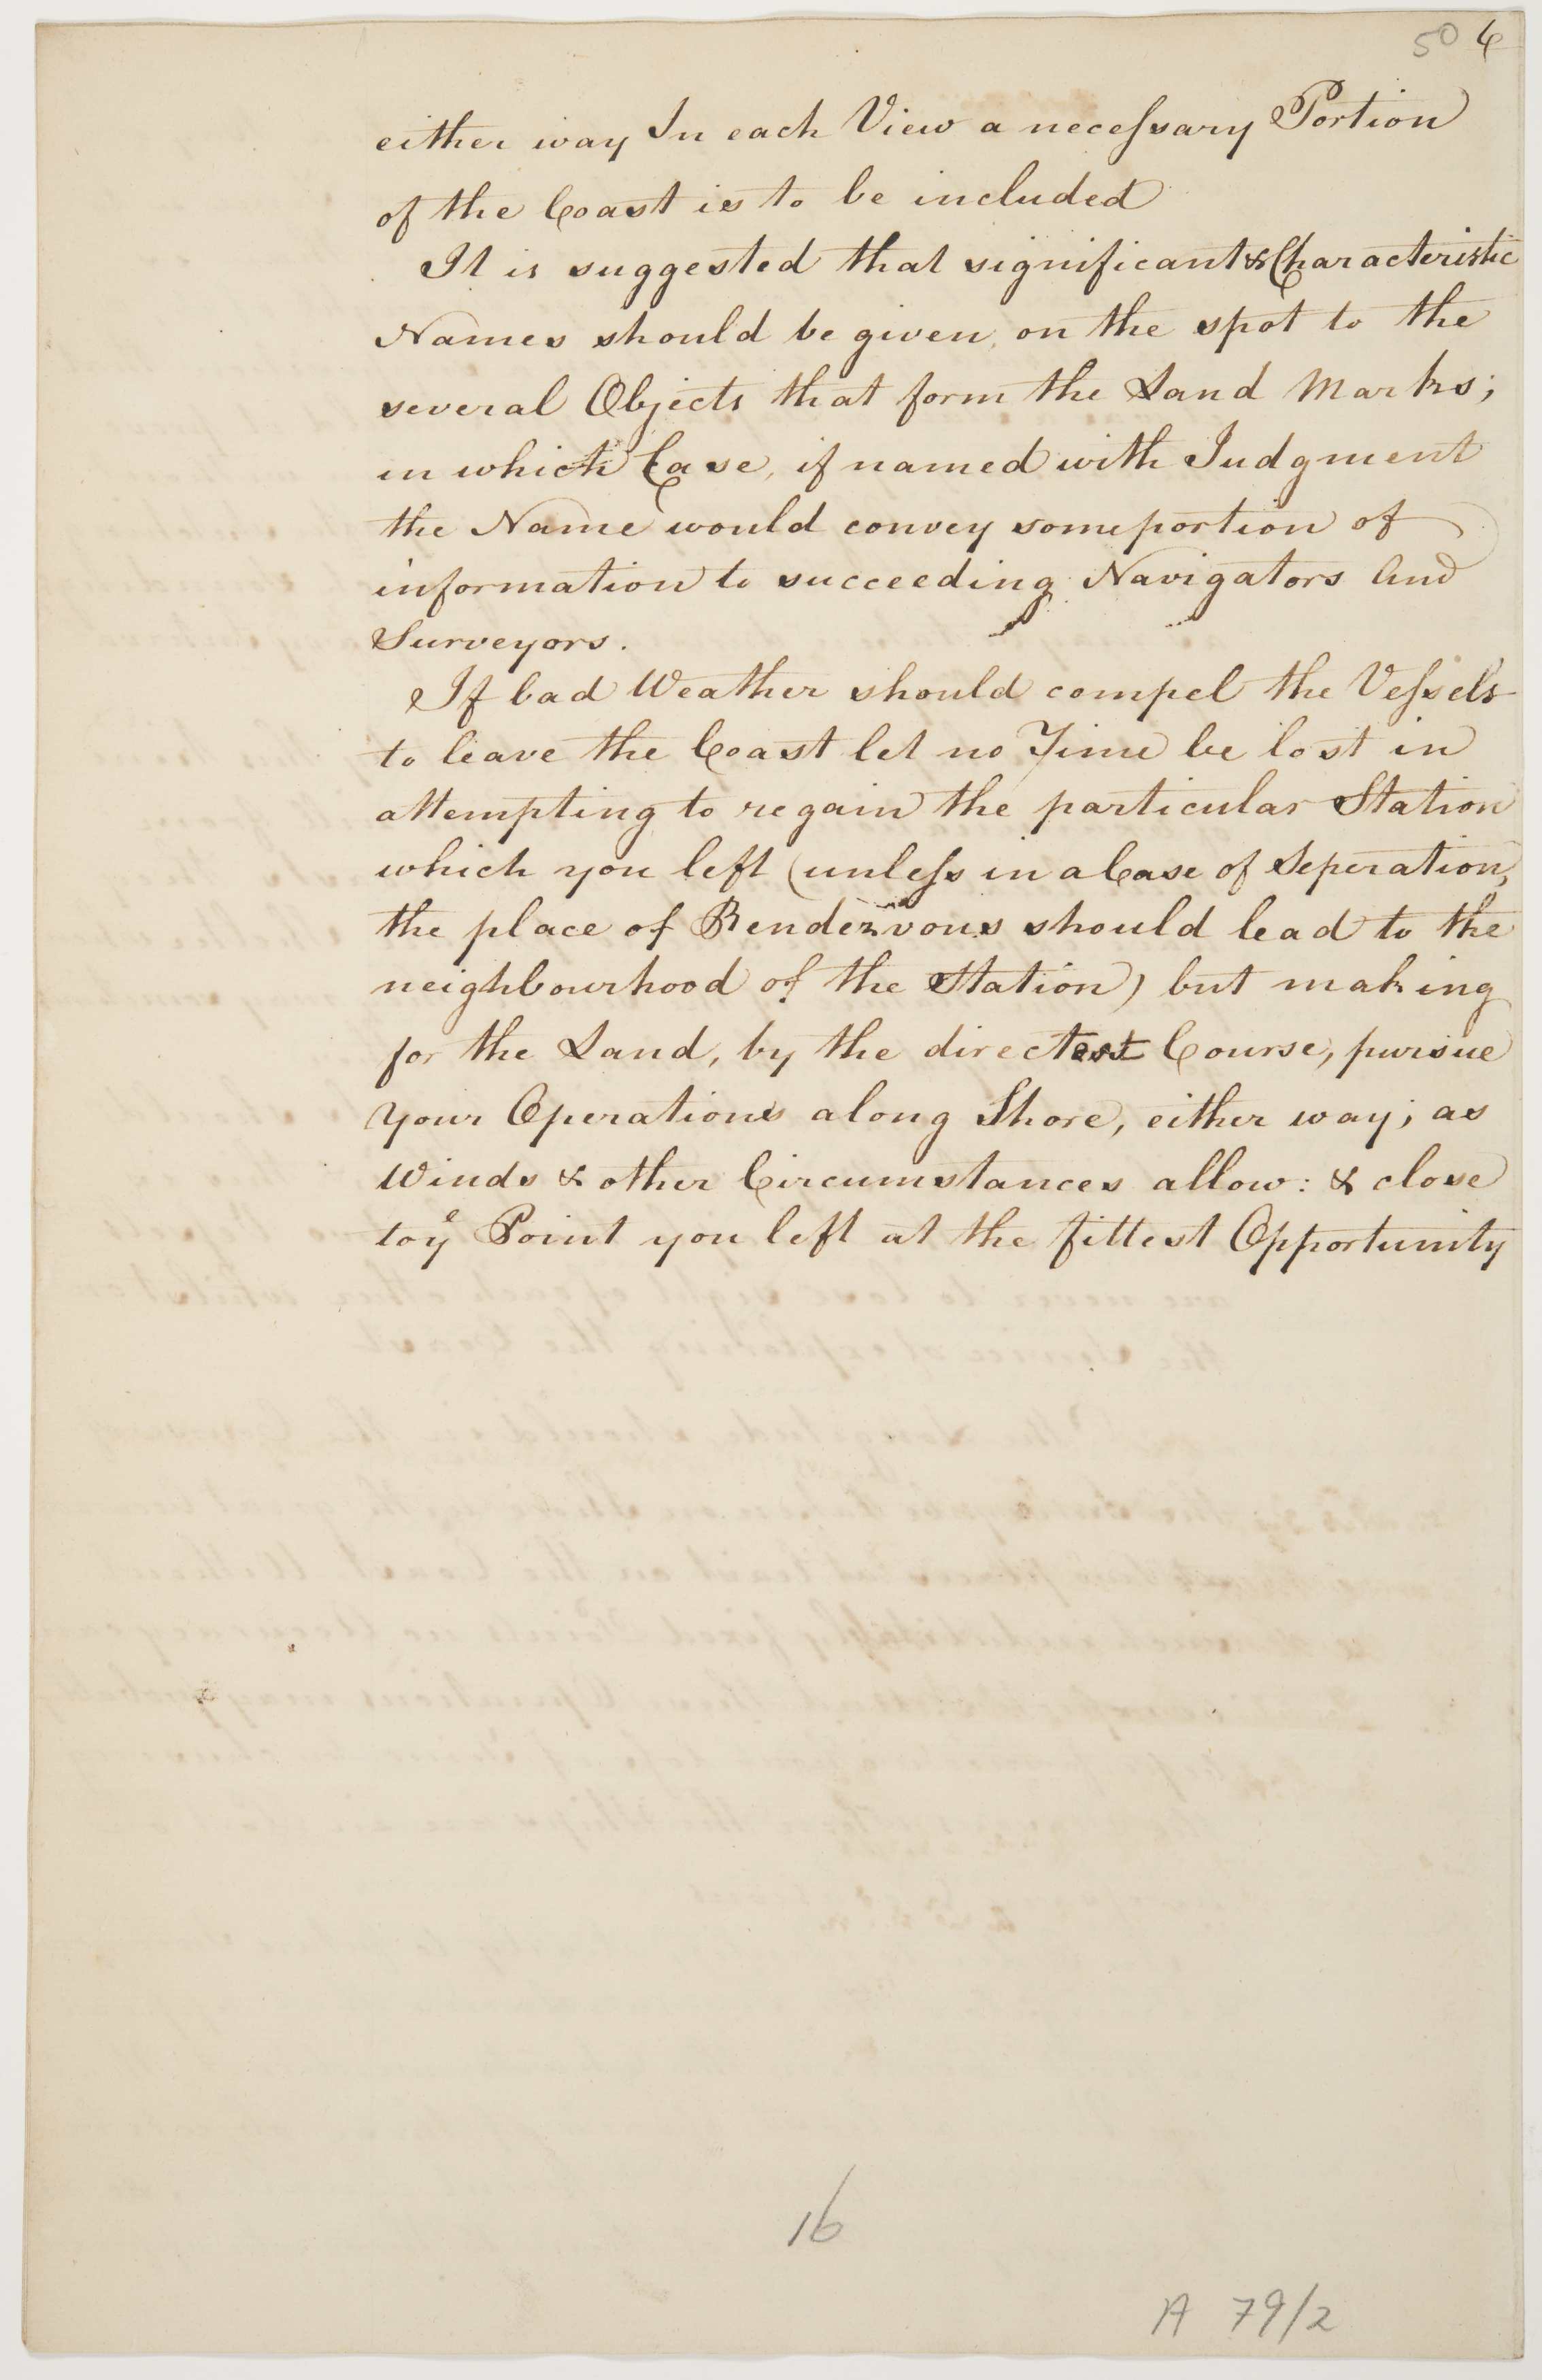 50 6
either way In each View a necessary Portion
of the Coast is to be included
It is suggested that significant & Characteristic
Names should be given, on the spot to the
several Objects that form the Land Marks;
in which Case, if named with Judgment
the Name would convey some portion of
information to succeeding Navigators And
Surveyors.
If bad Weather should compel the Vessels
to leave the Coast let no Time be lost in
attempting to regain the particular Station
which you left (unless in a Case of Seperation,
the place of Rendezvous should lead to the
neighbourhood of the Station) but making
for the Land, by the directest Course, pursue
your Operations along Shore, either way; as
Winds & other Circumstances allow: & close
to ye Point you left at the fittest Opportunity
16
A 79/2